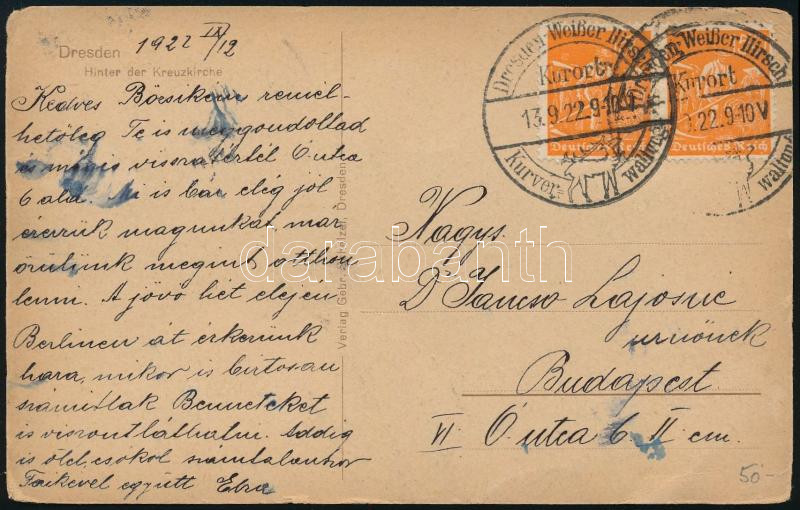 Dresden 1922 IX/12
Hinter der Kreuzkirche
Kedves Böcsikém remél-
hetőleg Te is meggondoltad
és mégis visszatértél Ó utca
6 alá. Mi is bár elég jól
érezzük magunkat már
örülünk megint otthon
lenni. A jövő hét elején
Berlinen át érkezünk
haza, mikor is biztosan
számítlak Benneteket
is viszontláthatni. Addig
is ölel, csókol számtalanszor
együtt
Verlag Gebr. Dresden
Dresden Weißer Hirsch
Kurort
13.9.22.9-10 V
Kurver-
waltung
Deutsches Reich
Dresden Weißer Hirsch
Kurort
.22.9-10 V
waltung
Deutsches Reich
darabanth
Nagys.
Dr Jancso Lajosné
urnőnek
Budapest
VI Ó utca 6. II em.
50-